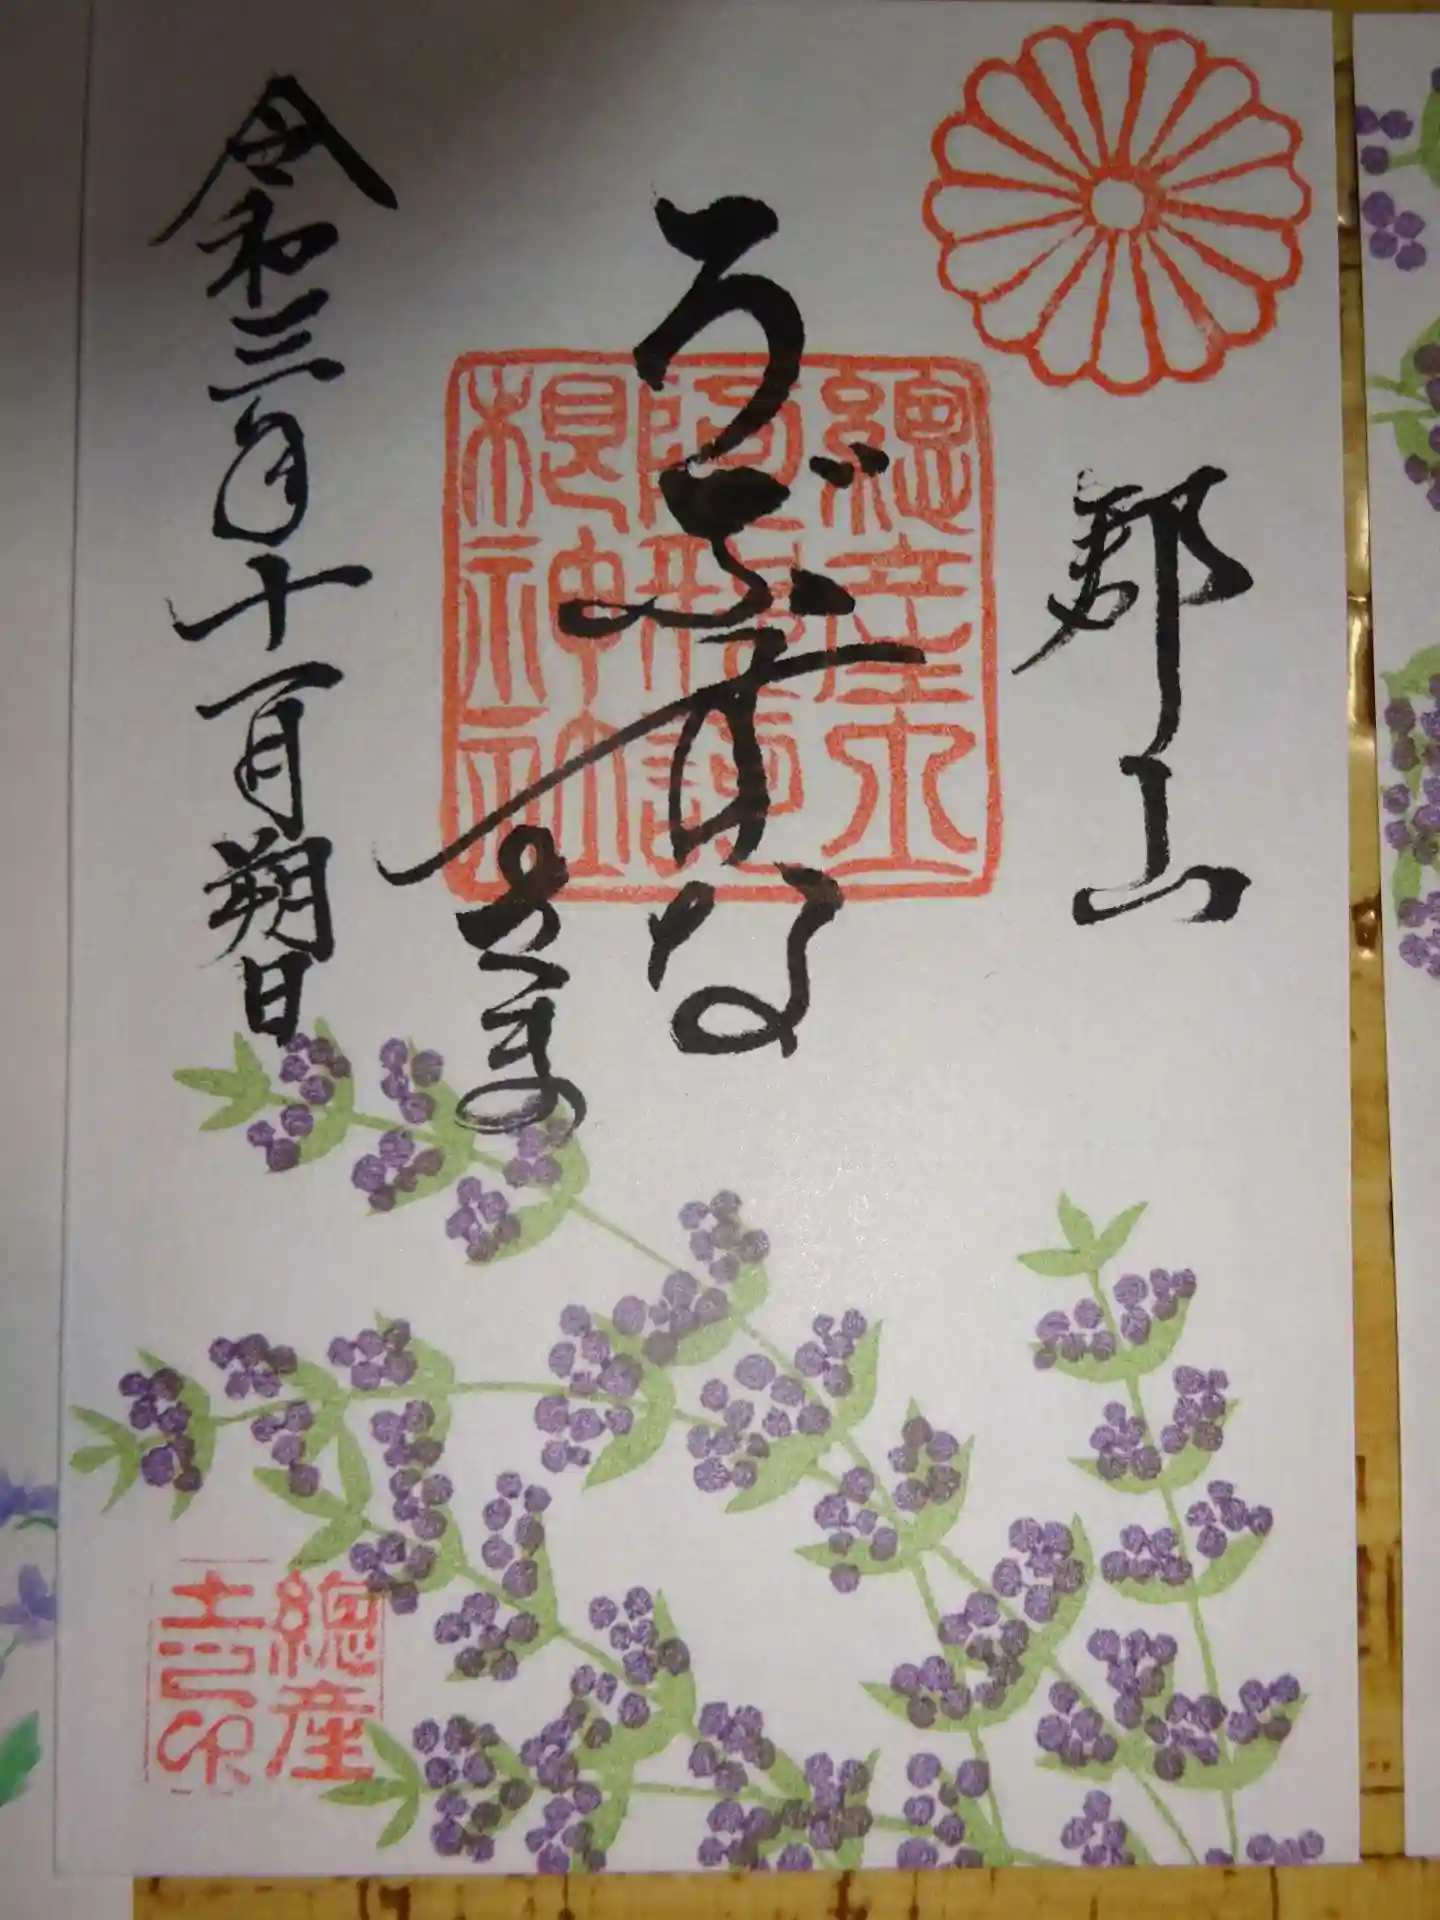 郡山
うぶすな
さま
令和三年十一月朔日
總産土
阿邪訶
根神社
總産
土之印